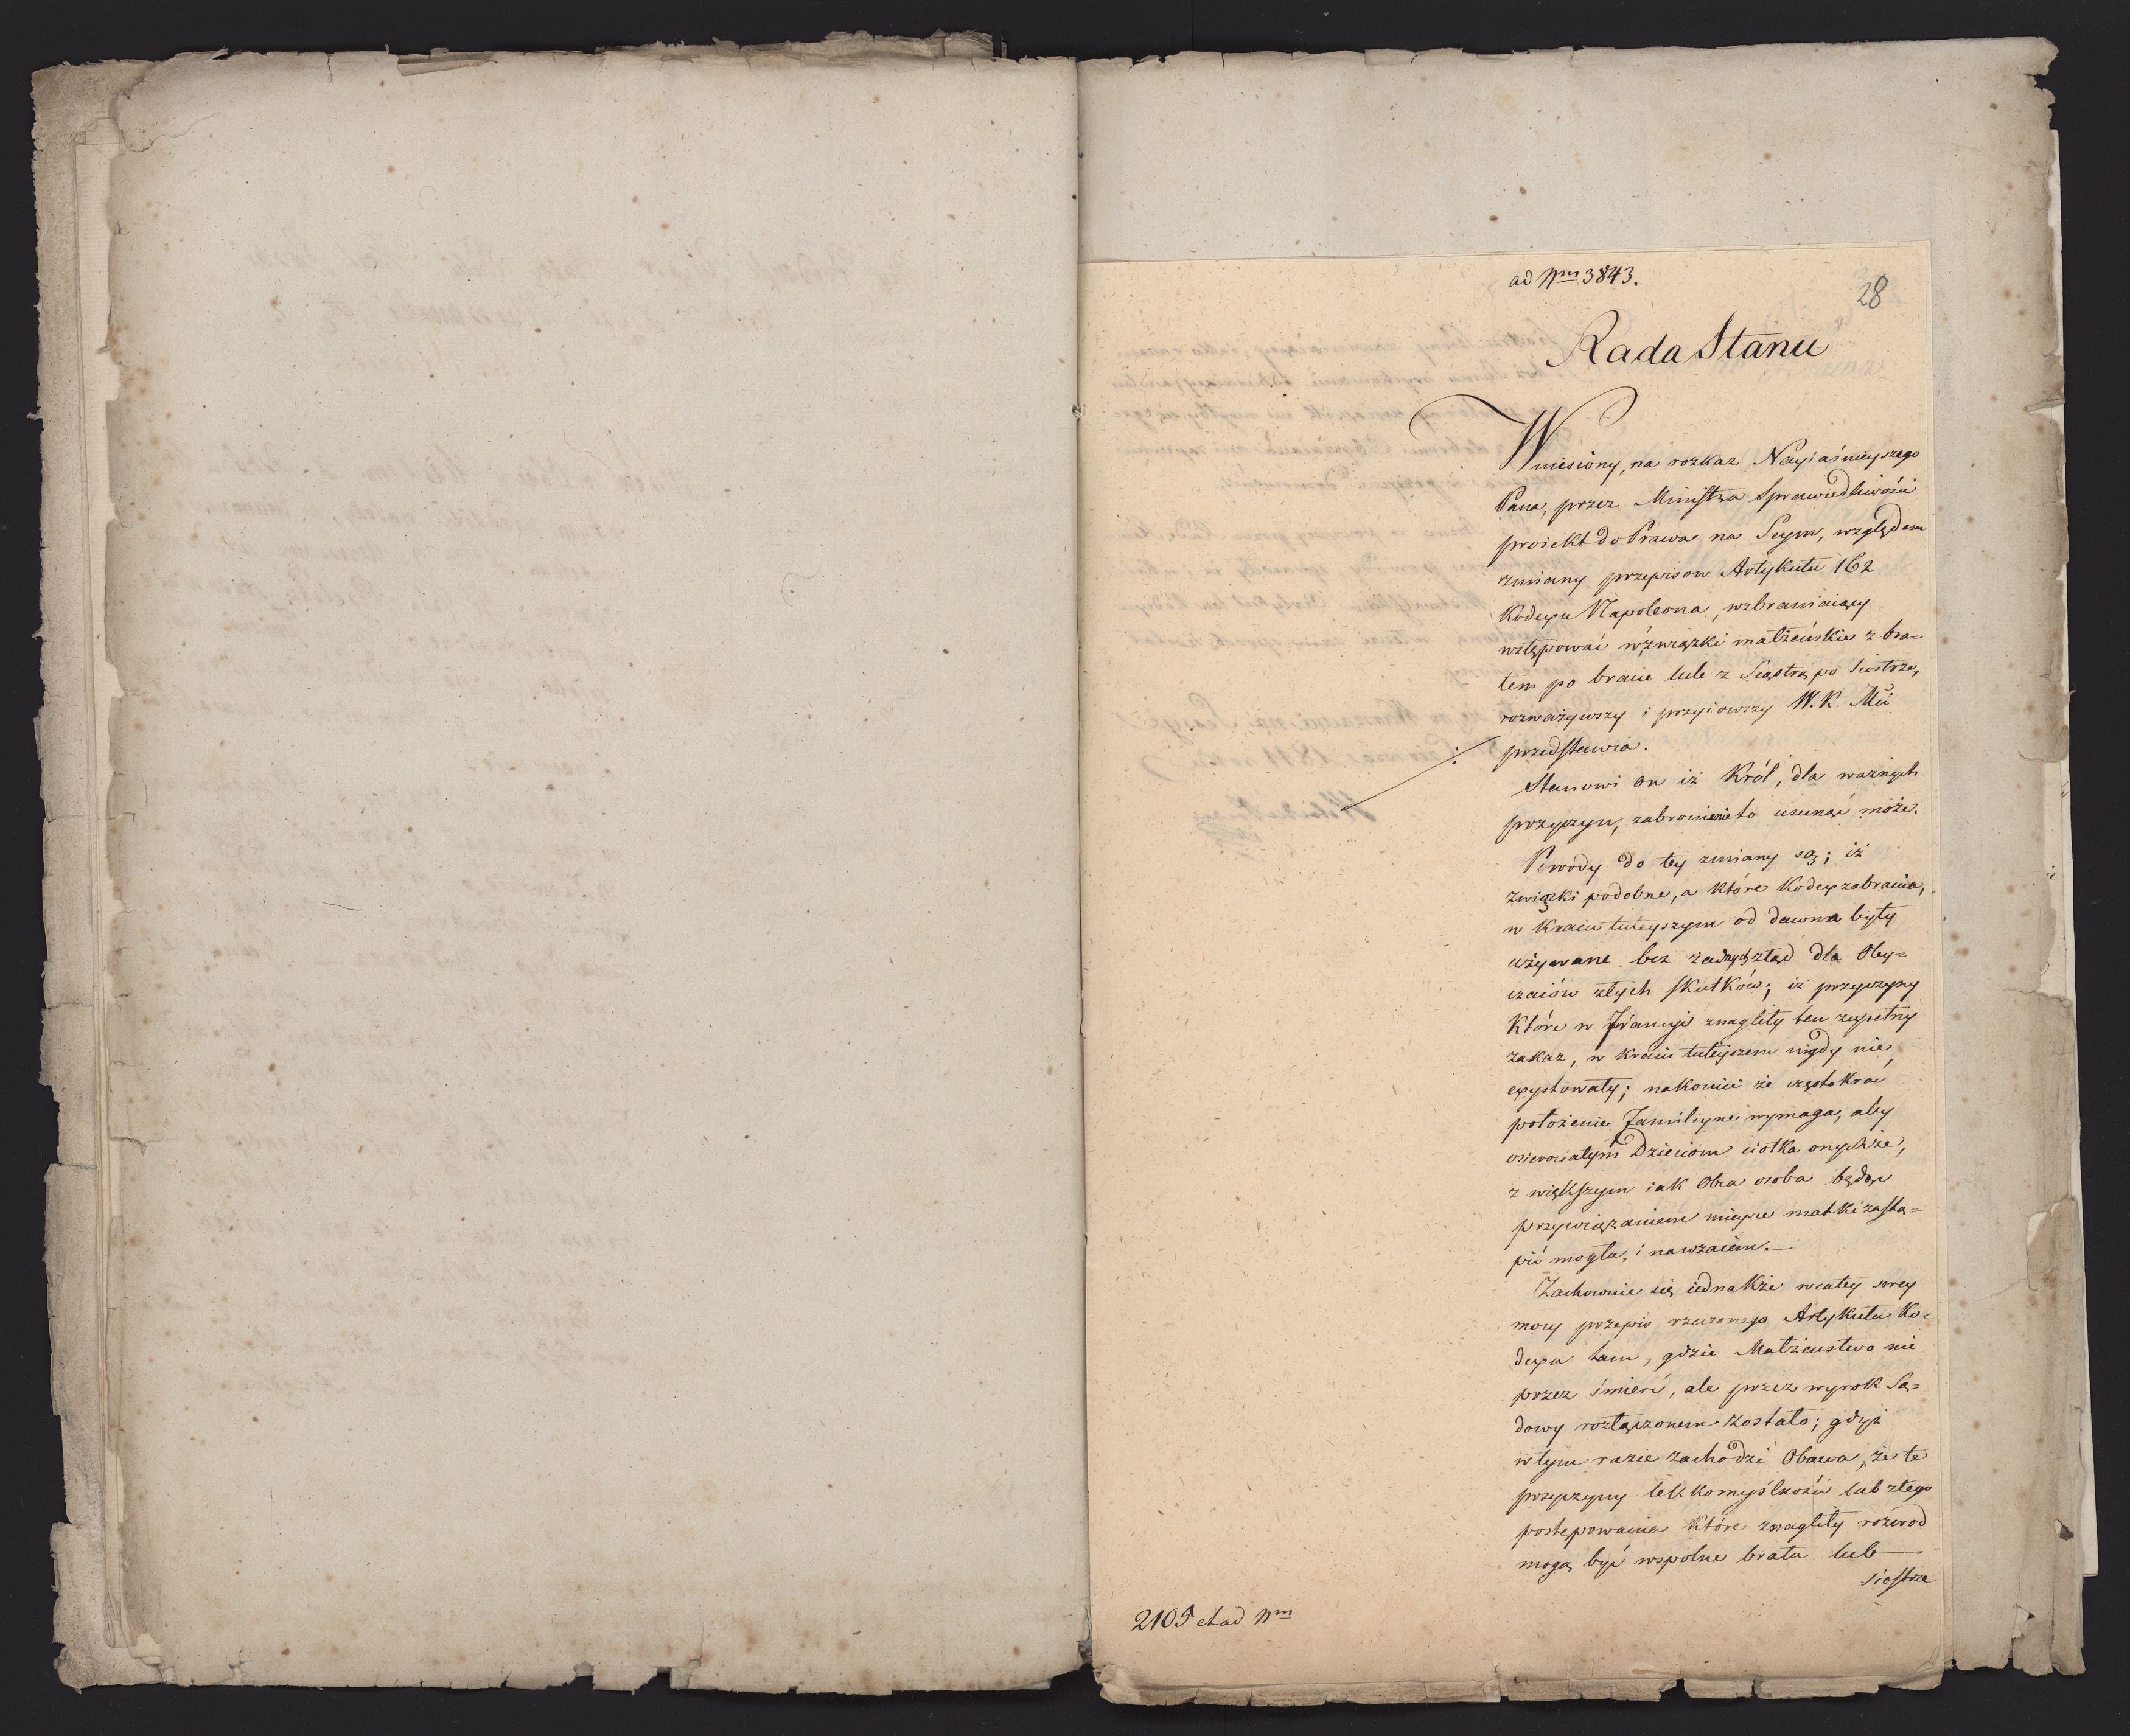 ad Nrm 3843.
28
Rada Stanu
Wniesiony, na rozkaz Nayiaśnieyszego
Pana, przez Ministra Sprawiedliwości
proiekt do Prawa na Seym, względem
zmiany przepisow Artykułu 162
Kodexu Napoleona, wzbraniaiący
wstępować w związki małżeńskie z bra=
tem po bracie lub z Siostrą po Siostrze,
rozważywszy i przyiowszy W. K. Mci
przedstawia.
Stanowi on iż Król, dla ważnych
przyczyn, zabronienie to usunąć może.
Powody do tey zmiany są; iż
związki podobne, a które Kodex zabrania,
w Kraiu tuteyszym od dawna były
używane bez żadnych ztąd dla Oby=
czaiów złych skutków; iż przyczyny
które w Francyi znagliły ten zupełny
zakaz, w kraiu tuteyszem nigdy nie
exystowały; nakoniec że częstokroć
położenie Familiyne wymaga, aby
osierociałym Dzieciom ciotka onychże,
z większym iak Obca osoba będąc
przywiązaniem mieysce matki zastą=
pić mogła, i nawzaiem.—
Zachowuie się iednakże w całey swey
mocy przepis rzeczonego Artykułu Ko=
dexu tam, gdzie Małżeństwo nie
przez śmierć, ale przez wyrok Są=
dowy rozłączonem zostało; gdyż
w tym razie zachodzi Obawa, że te
przyczyny lekkomyślności lub złego
postępowania które znagliły rozwod
mogą być wspolne bratu lub
siostrze
2105 et ad Nrm